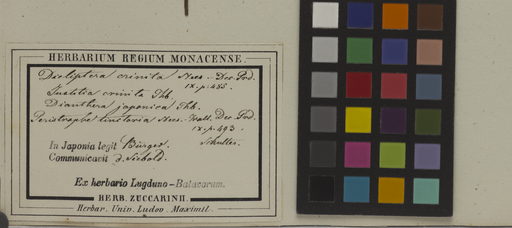 HERBARIUM REGIUM MONACENSE.
Dicliptera crinita Nees. Dec. Prod.
IX. p. 485.
Justicia crinita Thb.
Dianthera japonica Thb.
Peristrophe tinctoria Nees. Wall. Dec. Prod.
IX. p. 493.
In Japonia legit Bürger.
Communicavit d. Siebold.
Ex herbario Lugduno-Batavorum.
HERB. ZUCCARINII.
Herbar. Univ. Ludov. Maximil.